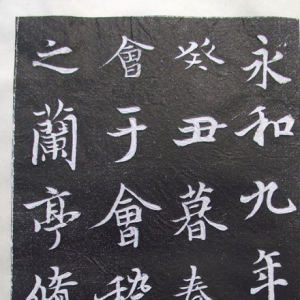 永和九年
癸丑暮春
會于會稽
之蘭亭脩